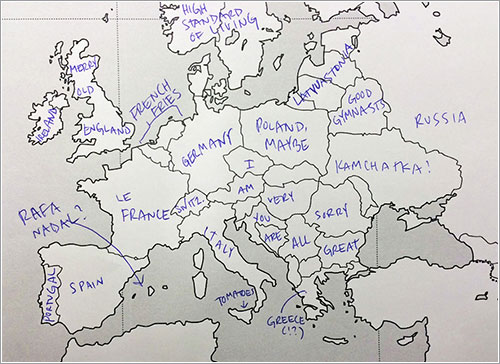 HIGH
STANDARD
OF LIVING
MERRY
OLD
ENGLAND
IRELAND
FRENCH
FRIES
LATVIASTONIA
GOOD
GYMNASTS
RUSSIA
GERMANY
POLAND,
MAYBE
KAMCHATKA!
I
AM
VERY
SORRY
YOU
ARE
ALL
GREAT
LE
FRANCE
SWITZ.
ITALY
RAFA
NADAL?
PORTUGAL
SPAIN
TOMATOES
GREECE
(!?)